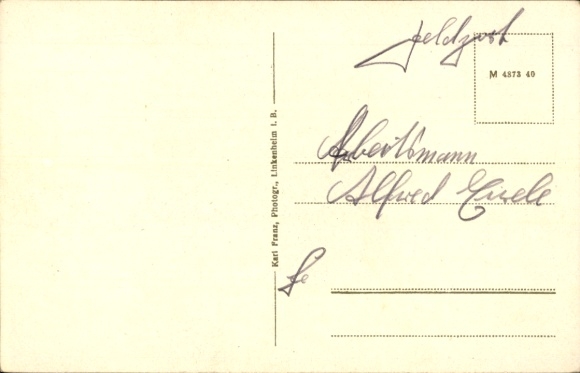 Feldpost
M 4873 40
Karl Franz, Photogr., Linkenheim i. B.
Arbeitsmann
Alfred Eisele